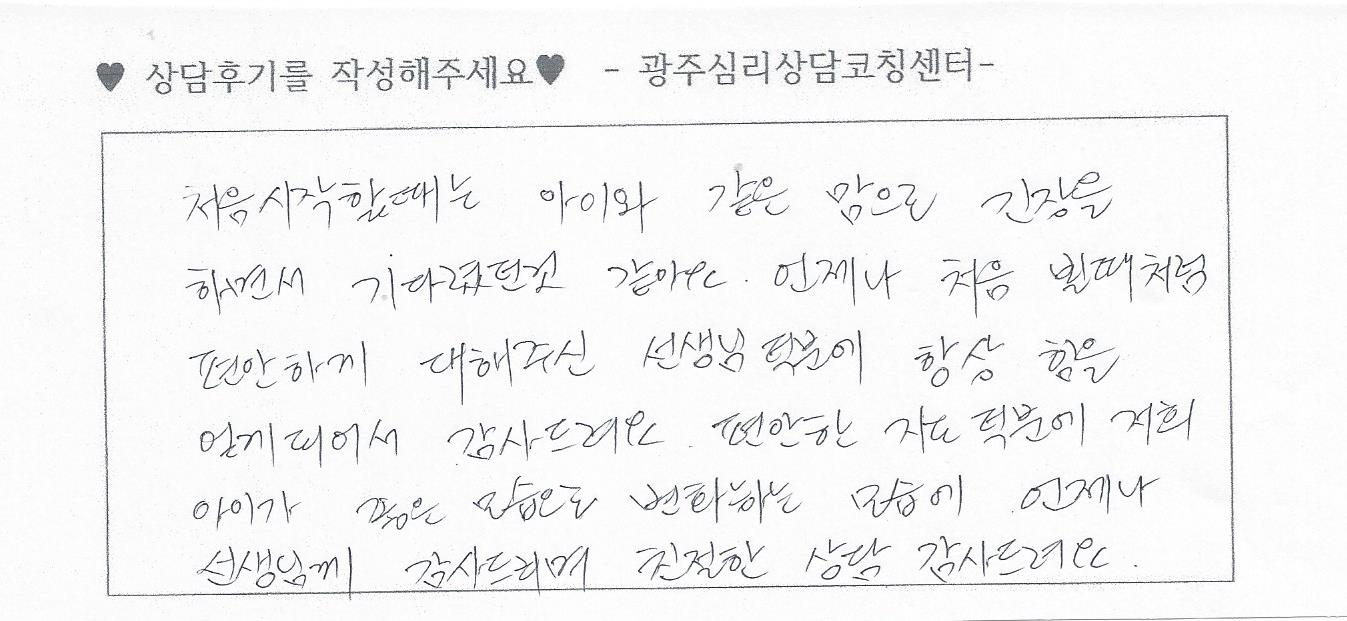 ♥ 상담후기를 작성해주세요♥ - 광주심리상담코칭센터-
처음시작할때는 아이와 같은 맘으로 긴장을
하면서 기다렸던것 같아요. 언제나 처음 뵐때처럼
편안하게 대해주신 선생님덕분에 항상 힘을
얻게되어서 감사드려요. 편안한 지도덕분에 저희
아이가 좋은 모습으로 변화하는 모습에 언제나
선생님께 감사드리며 친절한 상담 감사드려요.